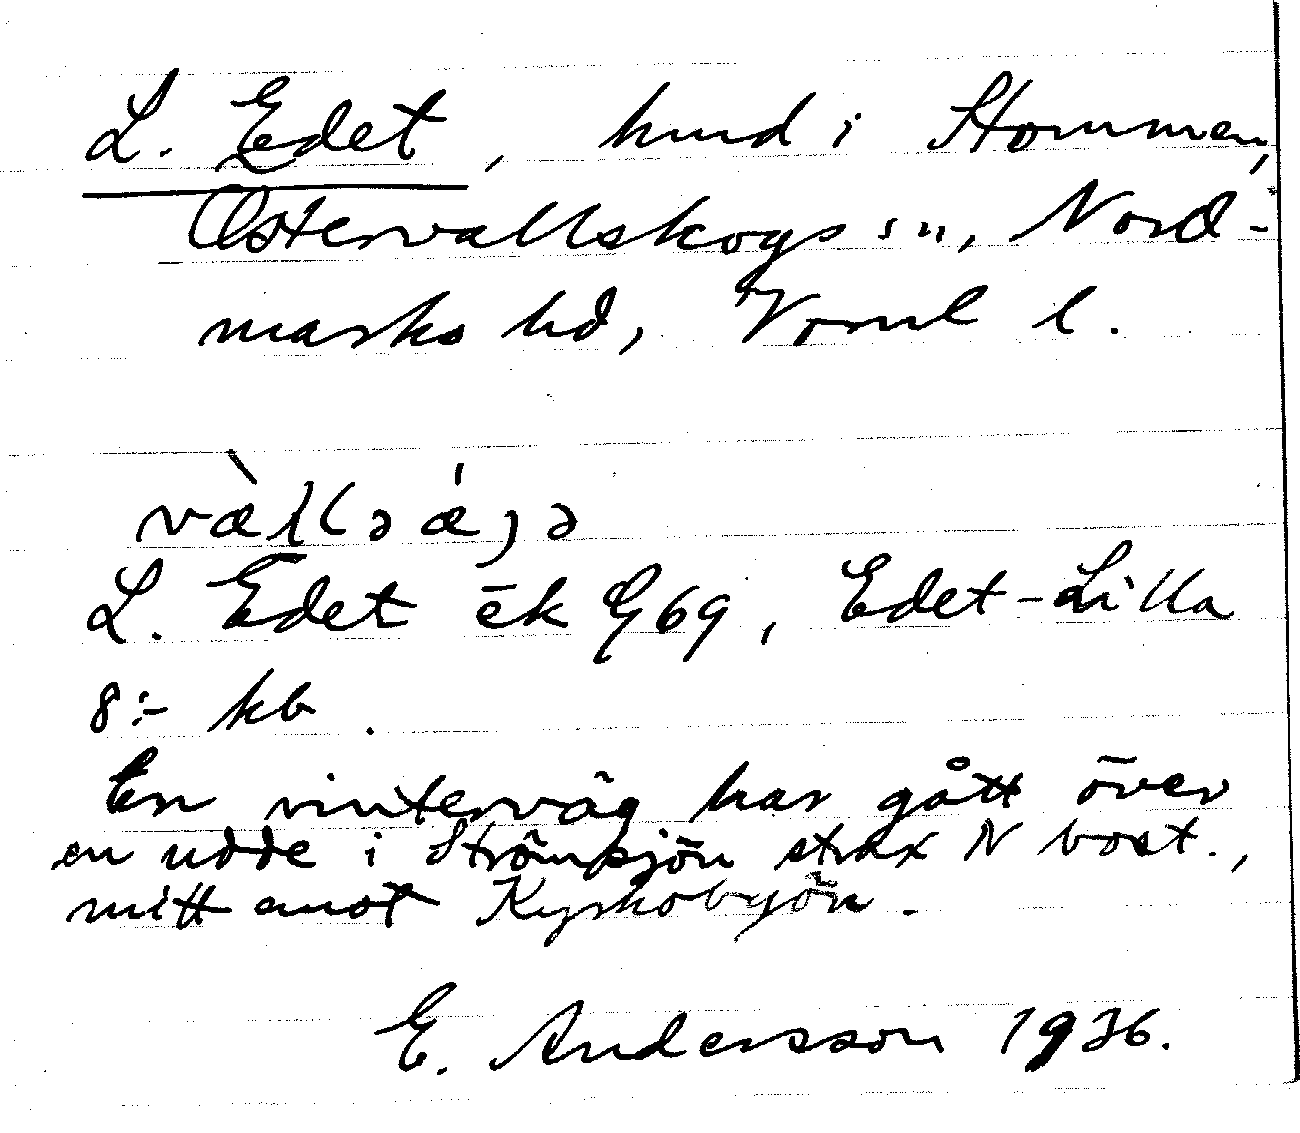 L. Edet, hmd i Stommen,
Östervallskogs sn, Nord-
marks hd, Vrml l.
væ̀l(ə æ̍jə
L. Edet ēk E69, Edet-Lilla
8:- kb.
En vinterväg har gått över
en udde i Strömsjön strax N bost.,
mitt emot Kyrkobyön.
E. Andersson 1936.